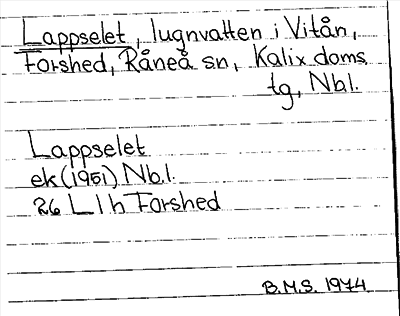 Lappselet, lugnvatten i Vitån,
Forshed, Råneå sn, Kalix doms.
tg, Nbl.
Lappselet
ek (1951) Nb.l.
26 L 1 h Forshed
B.M.S. 1974